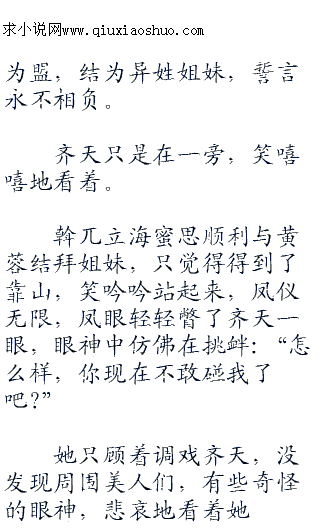 求小说网www.qiuxiaoshuo.com
为盟，结为异姓姐妹，誓言
永不相负。
齐天只是在一旁，笑嘻
嘻地看着。
斡兀立海蜜思顺利与黄
蓉结拜姐妹，只觉得得到了
靠山，笑吟吟站起来，凤仪
无限，凤眼轻轻瞥了齐天一
眼，眼神中仿佛在挑衅：“怎
么样，你现在不敢碰我了
吧?”
她只顾着调戏齐天，没
发现周围美人们，有些奇怪
的眼神，悲哀地看着她